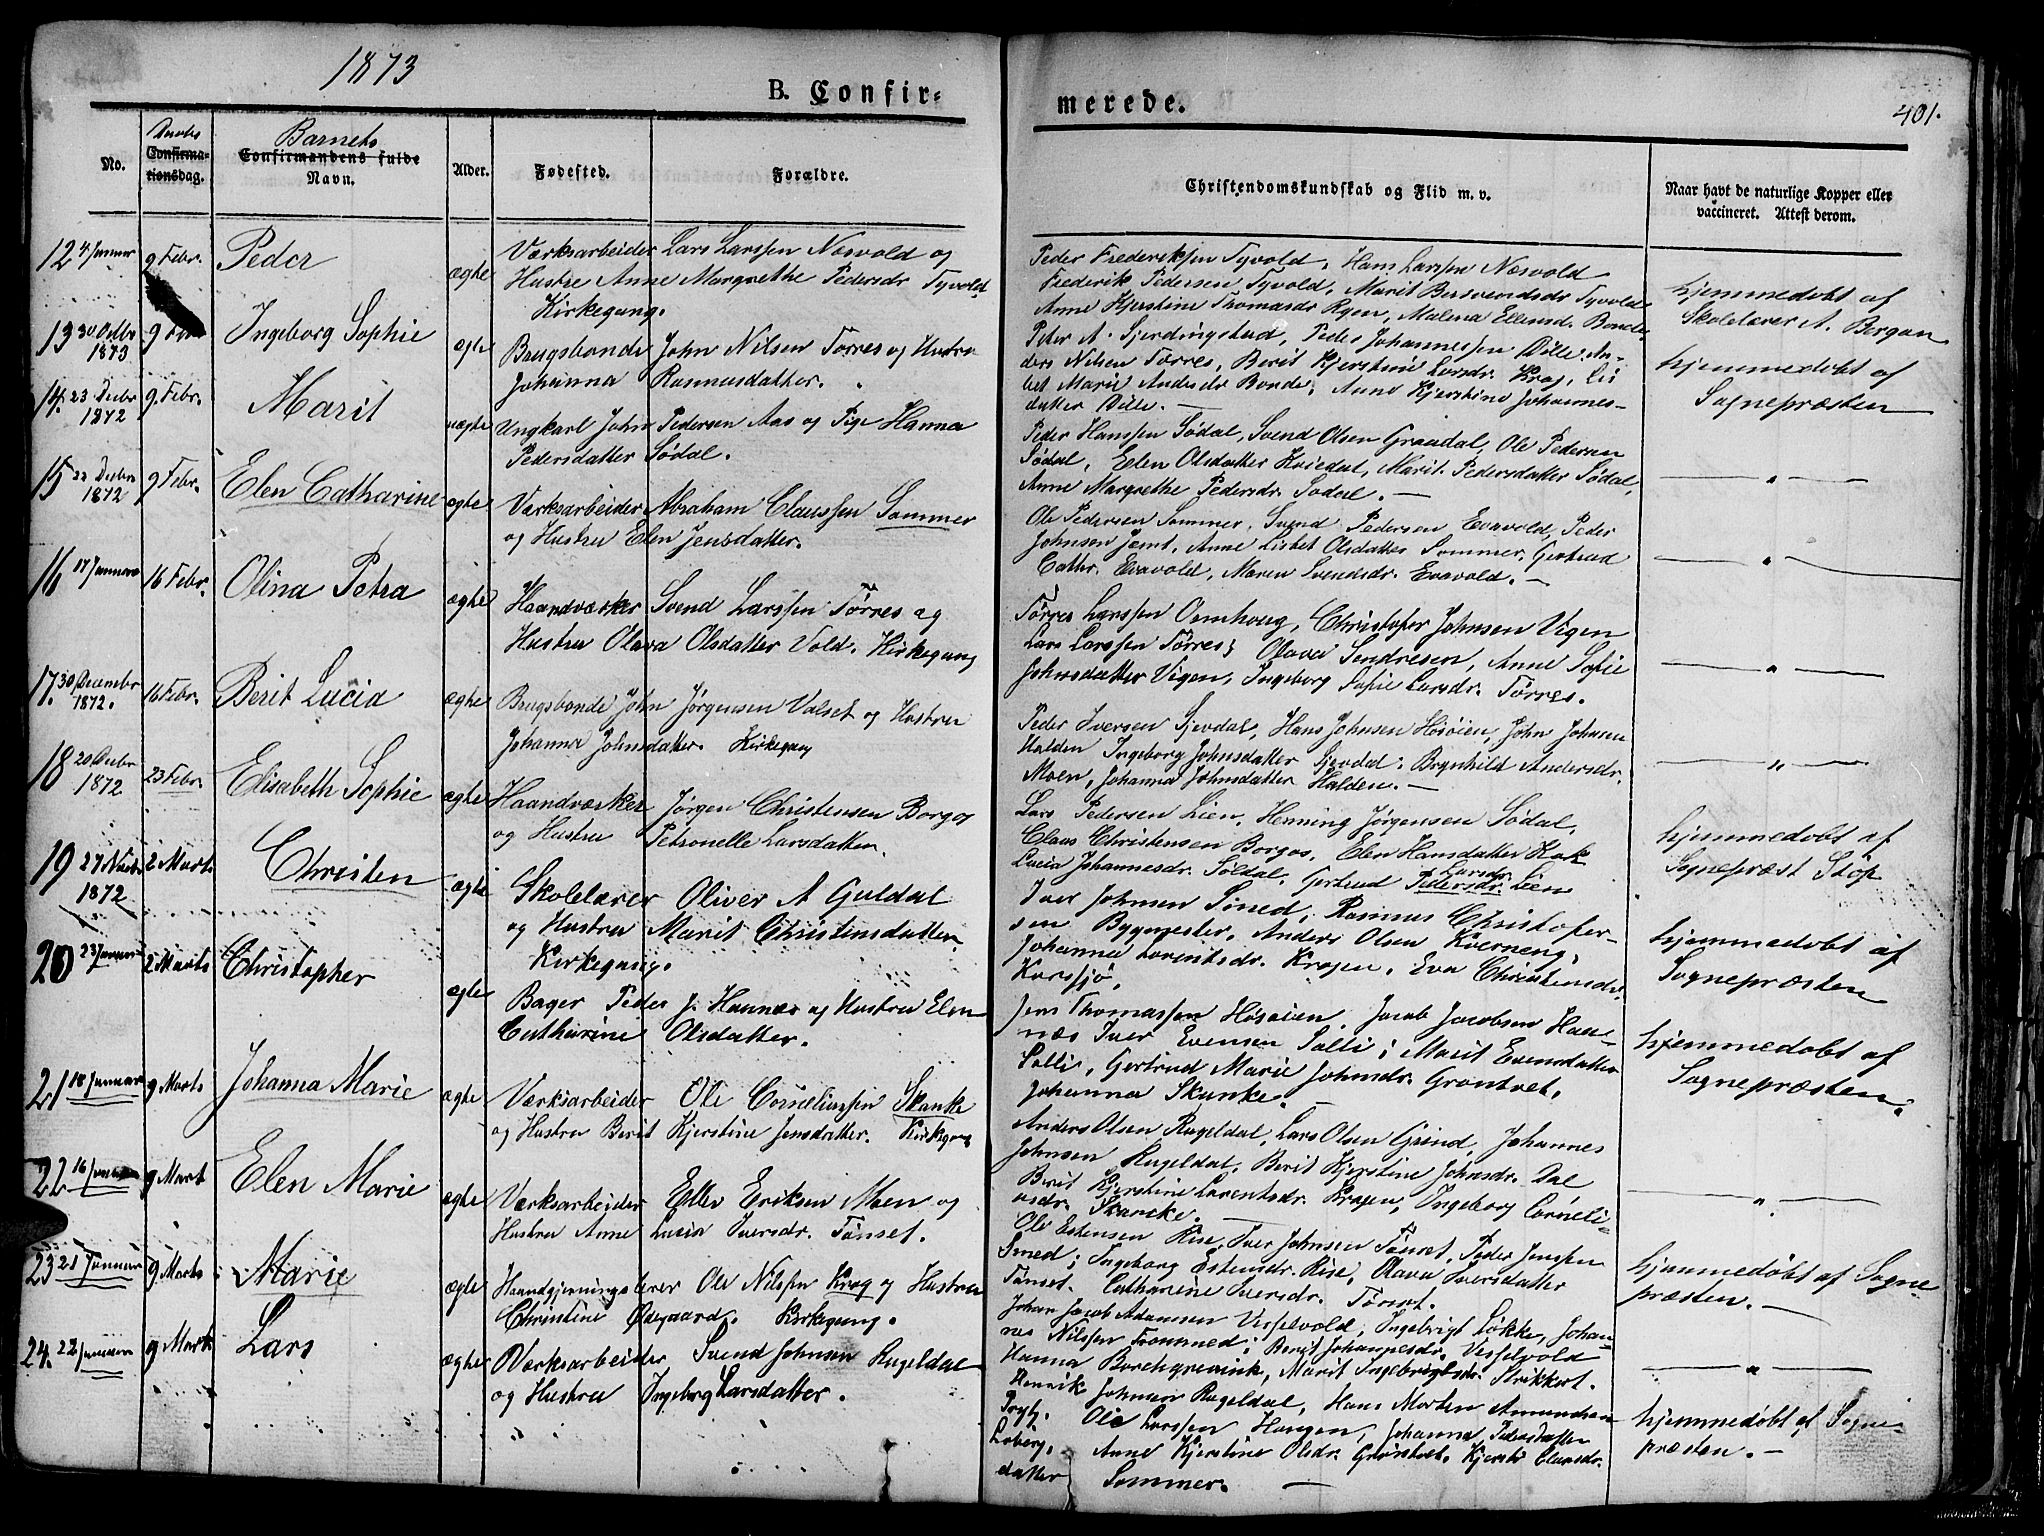 1873
B. Confir=
merede.
401.
No.
Daabs
Confirma-
tionsdag.
Barnets
Confirmandens fulde
Navn.
Alder.
Fødested.
Forældre.
Christendomskundskab og Flid m. v.
Naar havt de naturlige Kopper eller
vaccineret. Attest derom.
12 4 Januar 9 Febr. Peder ægte
Værksarbeider Lars Larssen Næsvold og
Hustru Anne Margrethe Pedersdr Tyvold
Kirkegang.
Peder Frederiksen Tyvold, Hans Larssen Næsvold
Frederik Pedersen Tyvold, Marit Bersvendsdr Tyvold
Anne Kjerstine Thomasdr Rgen, Malena Ellensd. Bonde
hjemmedøbt af
Skolelærer A. Borgan
13 30 Octbr 1873 9 Febr Ingeborg Sophie ægte
Brugsbonde John Nilsen Tørres og Hustru
Johanna Rasmusdatter.
Peter A. Gjerdingstad, Peder Johannessen Dølle, An-
ders Nilsen Tørres, Berit Kjerstine Larsdr. Krog, Lis
bet Marie Andersdr Bonde, Anne Kjerstine Johannes-
datter Dølle. —
hjemmedøbt af
Sognepræsten
14. 23 Decbr 1872 9. Febr. Marit uægte
Ungkarl John Pedersen Aas og Pige Hanna
Pedersdatter Sødal.
Peder Hanssen Sødal, Svend Olsen Graadal, Ole Pedersen
Sødal, Elen Olsdatter Kviedal, Marit Pedersdatter Sødal,
Anne Margrethe Pedersdr. Sødal. —
— „ —
15 22 Decbr 1872 9 Febr. Elen Catharine ægte
Værksarbeider Abraham Claussen Sommer
og Hustru Elen Jensdatter.
Ole Pedersen Sommer, Svend Pedersen Evavold, Peder
Johnsen Jemt, Anne Lisbet Olsdatter Sommer, Gertrud
Cathr. Evavold, Maren Svendsdr. Evavold. —
— „ —
16 17 Januar 16 Febr. Olina Petra ægte
Haandværker Svend Larssen Tørres og
Hustru Olava Olsdatter Vold. Kirkegang
Tørres Larssen Ormhaug, Christofer Johnsen Vigen
Lars Larssen Tørres; Olava Sendresen, Anne Sofie
Johnsdatter Vigen, Ingeborg Sofie Larsdr. Tørres.
— „ —
17. 30 Decembr 1872. 16 Febr. Berit Lucia ægte
Brugsbonde John Jørgensen Valset og Hustru
Johanna Johnsdatter. Kirkegang
Peder Iversen Gjevdal, Hans Johnsen Høsøien, John Johnsen
Halden Ingeborg Johnsdatter Gjevdal, Brynhild Andersdr.
Moen, Johanna Johnsdatter Halden. —
— „ —
18 20 Decbr 1872 23 Febr. Elisabeth Sophie ægte
Haandværker Jørgen Christensen Borgos
og Hustru Petronelle Larsdatter.
Lars Pedersen Lien, Henning Jørgensen Sødal,
Claus Christensen Borgos, Elen Hansdatter Kok
Lucia Johannesdr. Sødal, Gertrud Pedersdr. Larsdr. Lien
hjemmedøbt af
Sognepræst Stop
19 27 Novbr 1872 2 Marts Christen ægte
Skolelærer Oliver A Guldal
og Hustru Marit Christinsdatter.
Kirkegang.
Iver Johnsen Smed, Rasmus Christofer-
sen Bygmester, Anders Olsen Kverneng,
Johanna Lorentsdr. Krogen, Eva Christensdr.
Korssjø.
hjemmedøbt af
Sognepræsten
20 23 Januar 2 Marts Christopher ægte
Bager Peder J. Hannæs og Hustru Elen
Catharine Olsdatter.
Jens Thomassen Høsøien, Jacob Jacobsen Han-
næs Iver Evensen Solli; Marit Evensdatter
Solli, Gertrud Marie Johnsdr. Grøntvet,
Johanna Skanke.
hjemmedøbt af
Sognepræsten.
21 18 Januar 9 Marts Johanna Marie ægte
Værksarbeider Ole Corneliussen Skanke
og Hustru Berit Kjerstine Jensdatter. Kirkegang
Anders Olsen Rugeldal, Lars Olsen Grind, Johannes
Johnsen Rugeldal, Berit Kjerstine Johnsdr. Dal
Berit Kjerstine Lorentsdr. Krogen, Ingeborg Corneli-
usdr. Skancke.
— „ —
22 16 Januar 9 Mart Elen Marie ægte
Værksarbeider Eller Eriksen Moen og
Hustru Anne Lucia Iversdr. Tønset.
Ole Estensen Rise, Iver Johnsen Tønset, Peder Jenssen
Smed; Ingeborg Estensdr. Rise, Olava Iversdatter
Tønset. Catharine Iversdr. Tønset.
hjemmedøbt af Sogne-
præsten. —
23 21 Januar 9 Marts Marie ægte
Haandgjerningslærer Ole Nilssen Krog og Hustru
Christine Ødegaard. Kirkegang.
Johan Jacob Adamsen Vesselvold, Ingebrigt Løkke, Johan-
nes Nilssen Trommed; Berit Johannesdr. Vesselvold
Hanna Borchgrevink, Marit Ingebrigtsdr. Strikkert.
— „ —
24. 22 Januar 9 Mart Lars ægte
Værksarbeider Svend Johnsen Rugeldal
og Hustru Ingeborg Larsdatter.
Henrik Johnsen Rugeldal, Hans Morten Amundsen
Trygh. Ole Larssen Haugen, Johanna Pedersdatter
Loberg, Anne Kjerstine Olsdr. Grøntvet, Kjersti Clausdr.
datter Sommer. —
hjemmedøbt af Sogne-
præsten. —